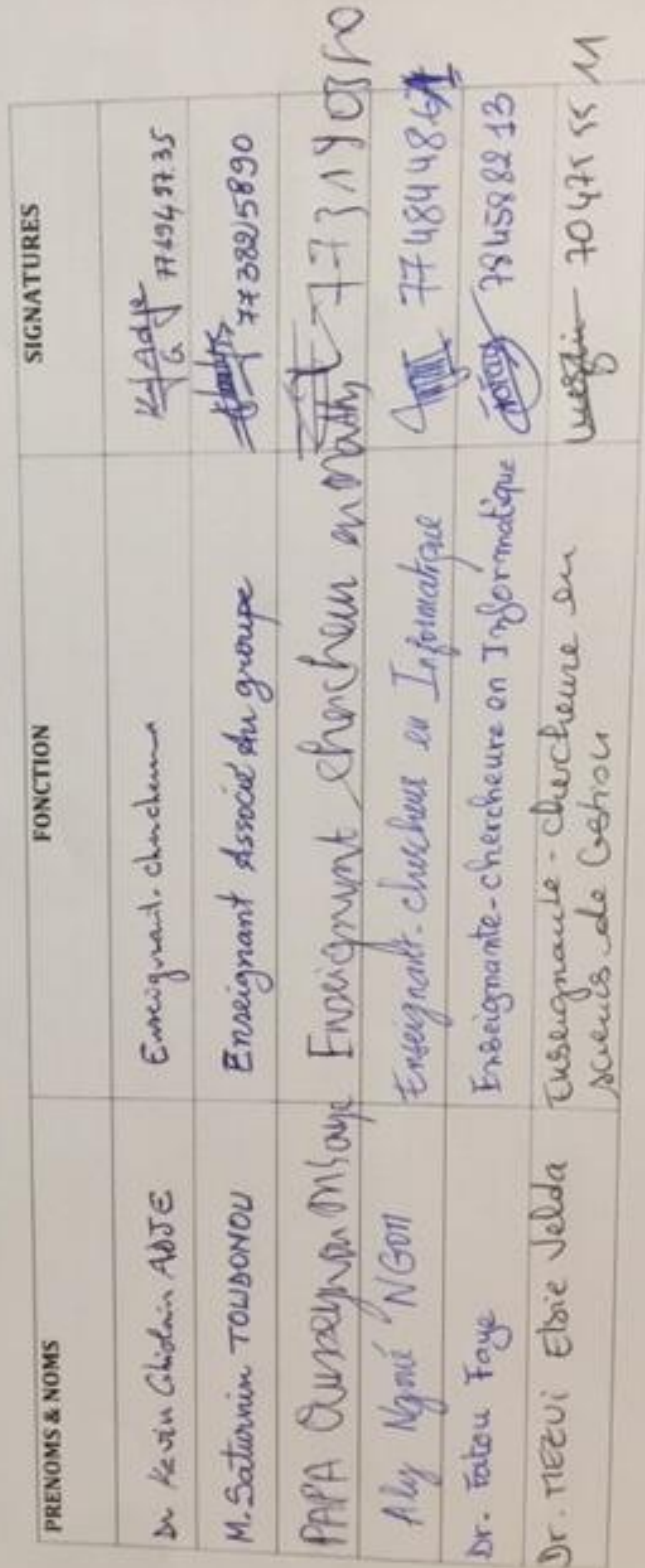 PRENOMS & NOMS FONCTION SIGNATURES
Dr Kevin Ghislain ADJE Enseignant-chercheur 77 694 97 35
M. Saturnin TOUDONOU Enseignant Associé du groupe 77 382 15890
PAPA Ousseynou Mbaye Enseignant chercheur en Maths
Aly Ngoné NGOM Enseignant-chercheur en Informatique 77 484 48 61
Dr. Fatou Faye Enseignante-chercheure en Informatique 78 458 82 13
Dr. MEZUI Elsie Jelda Enseignante-chercheure en 70 475 55 11
sciences de Gestion